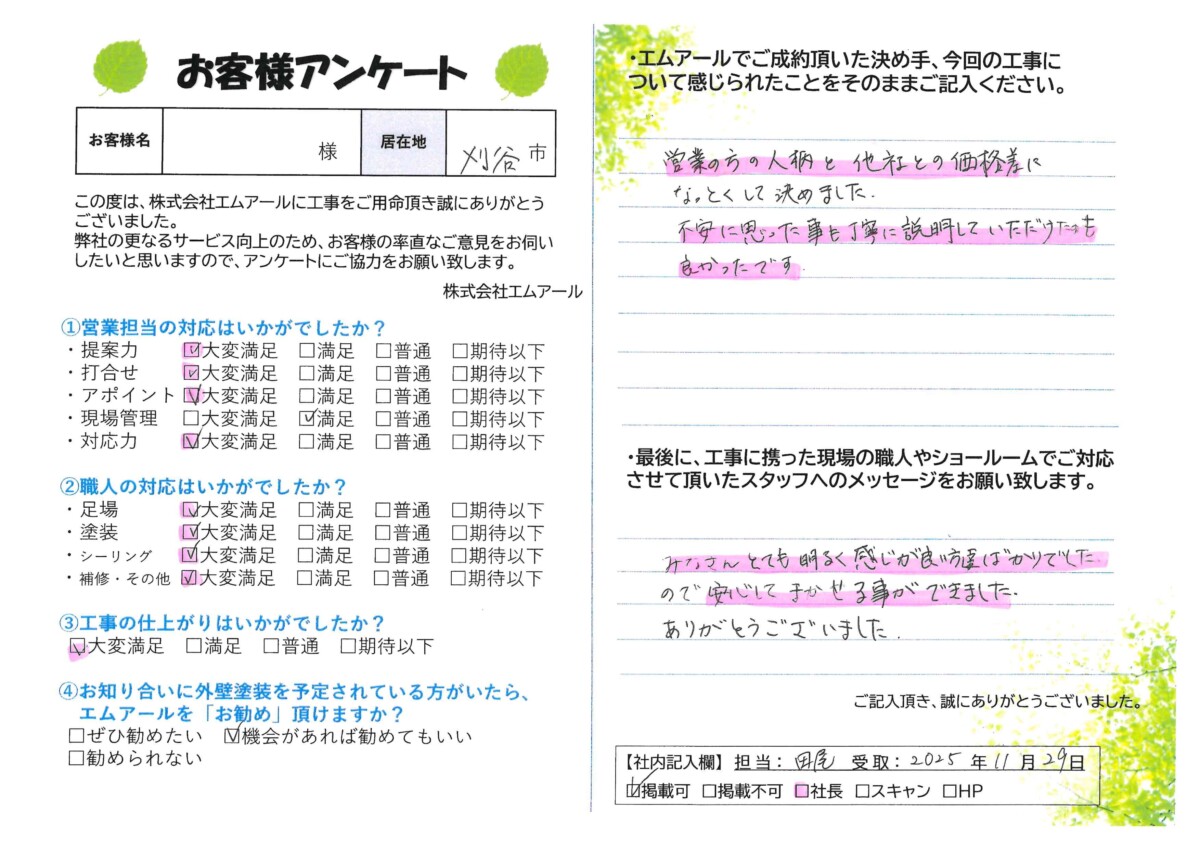 お客様アンケート
お客様名 様 居在地 刈谷市
この度は、株式会社エムアールに工事をご用命頂き誠にありがとう
ございました。
弊社の更なるサービス向上のため、お客様の率直なご意見をお伺い
したいと思いますので、アンケートにご協力をお願い致します。
株式会社エムアール
①営業担当の対応はいかがでしたか？
・提案力 ☑大変満足 □満足 □普通 □期待以下
・打合せ ☑大変満足 □満足 □普通 □期待以下
・アポイント ☑大変満足 □満足 □普通 □期待以下
・現場管理 □大変満足 ☑満足 □普通 □期待以下
・対応力 ☑大変満足 □満足 □普通 □期待以下
②職人の対応はいかがでしたか？
・足場 ☑大変満足 □満足 □普通 □期待以下
・塗装 ☑大変満足 □満足 □普通 □期待以下
・シーリング ☑大変満足 □満足 □普通 □期待以下
・補修・その他 ☑大変満足 □満足 □普通 □期待以下
③工事の仕上がりはいかがでしたか？
☑大変満足 □満足 □普通 □期待以下
④お知り合いに外壁塗装を予定されている方がいたら、
エムアールを「お勧め」頂けますか？
□ぜひ勧めたい ☑機会があれば勧めてもいい
□勧められない
・エムアールでご成約頂いた決め手、今回の工事に
ついて感じられたことをそのままご記入ください。
営業の方の人柄と他社との価格差に
なっとくして決めました.
不安に思った事も丁寧に説明していただけたのも
良かったです.
・最後に、工事に携った現場の職人やショールームでご対応
させて頂いたスタッフへのメッセージをお願い致します。
みなさんとても明るく感じが良い方達ばかりでした.
ので安心してまかせる事ができました.
ありがとうございました.
ご記入頂き、誠にありがとうございました。
【社内記入欄】担当：田尾 受取：2025年11月29日
☑掲載可 □掲載不可 □社長 □スキャン □HP